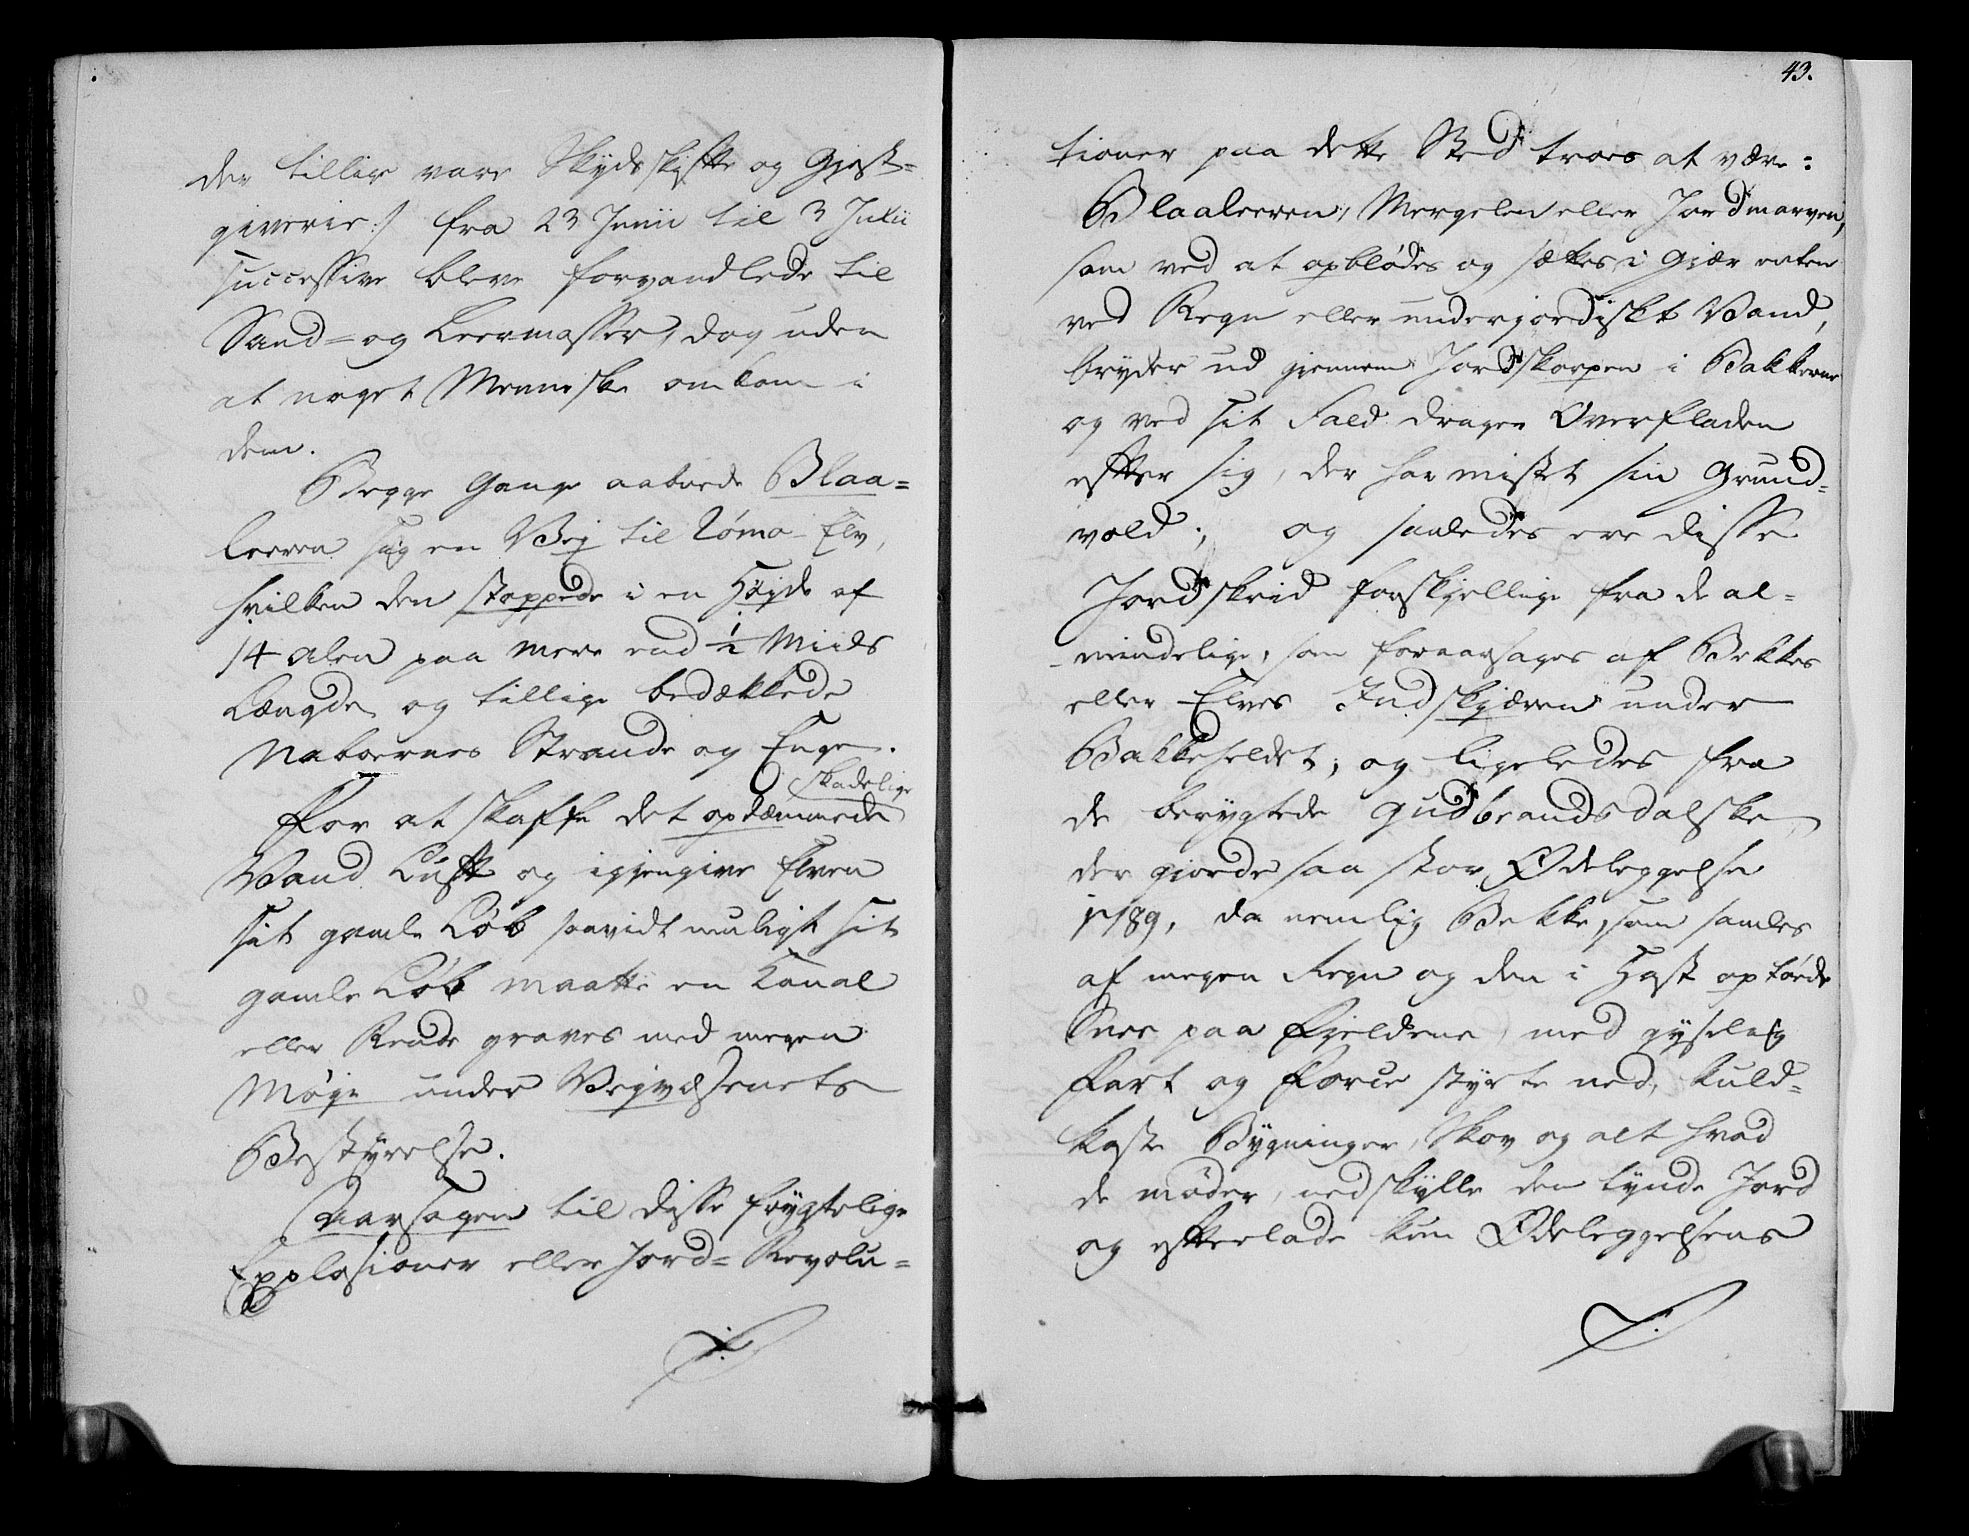 der tillige vare Skydsskifte og Gjest-
giverie:/ fra 23 Junii til 3 Julii
successive bleve forvandlede til
Sand- og Leermasser, dog uden
at noget Menneske omkom i
dem.
Begge Gange aabnede Blaa-
leeren sig en Vej til Rømo-Elv,
hvilken den stoppede i en Højde af
14 Alen paa mere end 1/2 Miils
Længde og tillige bedækkede
Naboernes Strande og Enge.
skadelige
For at skaffe det opdæmmede
Vand Luft og igjengive Elven
sit gamle Løb saavidt muligt sit
gamle Løb maatte en Kanal
eller Rende graves med megen
Møje under Vejvæsenets
Bestyrelse.
Aarsagen til disse frygtelige
Explosioner eller Jord- Revolu-
43.
tioner paa dette Sted troes at være:
Blaaleeren, Mergelen eller Jordmarven,
som ved at opblødes og sættes i Gjær enten
ved Regn eller underjordiskt Vand,
bryder ud gjennem Jordskorpen i Bakkerne
og ved sit Fald drager Overfladen
efter sig, der har mistet sin Grund-
vold; og saaledes ere disse
Jordskeid forskjellige fra de al-
mindelige, som foraarsages af Bekkes
eller Elves Indskjæren under
Bakkeheldet; og ligeledes fra
de berygtede Gudbrandsdalske
der gjorde saa stor Ødeleggelse
1789, da nemlig Bekke, som samles
af megen Regn og den i Hast optøede
Snee paa Fjeldene, med gyselig
Fart og Force styrte ned, kuld-
kaste Bygninger, Skov og alt hvad
de møder, nedskylle den tynde Jord
og efterlade kun Ødeleggelsens